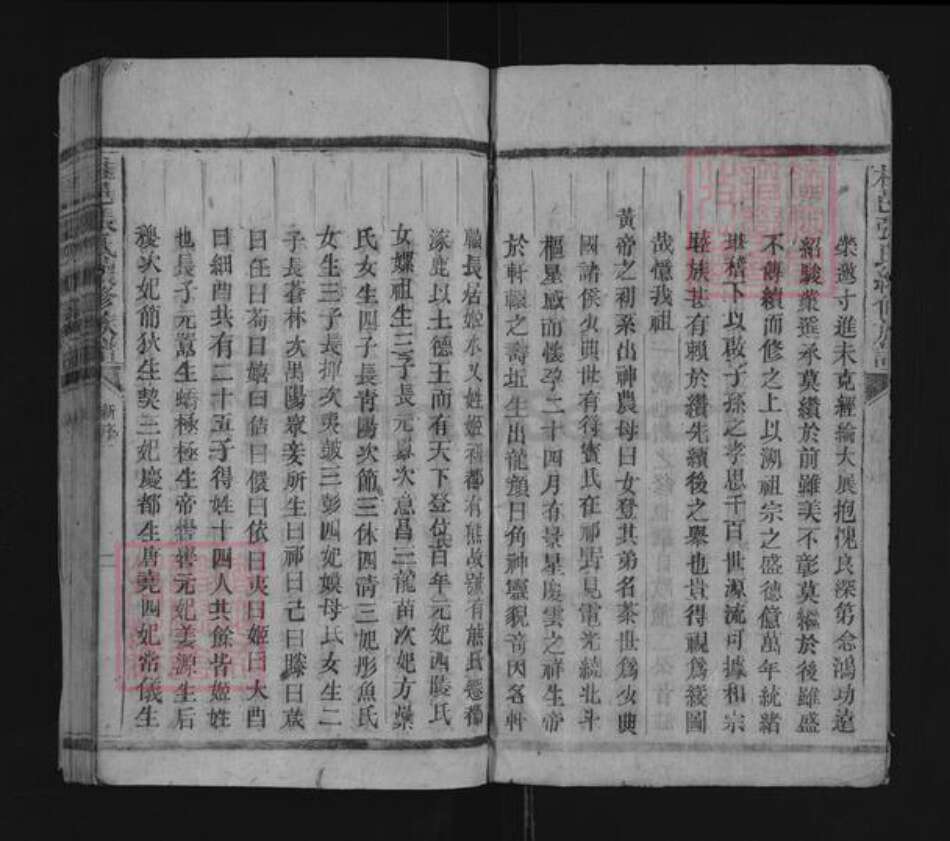 榮邀寸進未克經綸大展抱愧良深第念鴻功遠
紹駿業遙承莫纘於前雖美不彰莫繼於後雖盛
不傳續而修之上以溯祖宗之盛德億萬年統緒
堪稽下以啟子孫之孝思千百世源流可據和宗
睦族甚有賴於纘先續後之舉也豈得視爲緩圖
哉憶我祖
黃帝之初系出神農母曰女登其弟名茶世爲少典
國諸侯少典世有行蜜氏在祁野見電光繞北斗
樞星感而懷孕二十四月有景星慶雲之祥生帝
於軒轅之壽坵生出龍顏日角神靈貌奇因名軒
轅長居姬水又姓姬初都有熊故號有熊氏遷都
涿鹿以土德王而有天下登位百年元妃西陵氏
女嫘祖生三子長元囂次意昌三龍苗次妃方纍
氏女生四子長青陽次節三休四清三妃彤魚氏
女生三子長揮次夷鼓三彭四妃嫫母氏女生二
子長蒼林次禺陽眾妾所生曰祁曰己曰滕曰葴
曰任曰茍曰嬉曰佶曰儇曰依曰夷曰姬曰大酉
曰細酉共有二十五子得姓十四人共餘皆姬姓
也長子元囂生蟜極極生帝嚳嚳元妃姜源生后
稷次妃簡狄生契三妃慶都生唐堯四妃常儀生